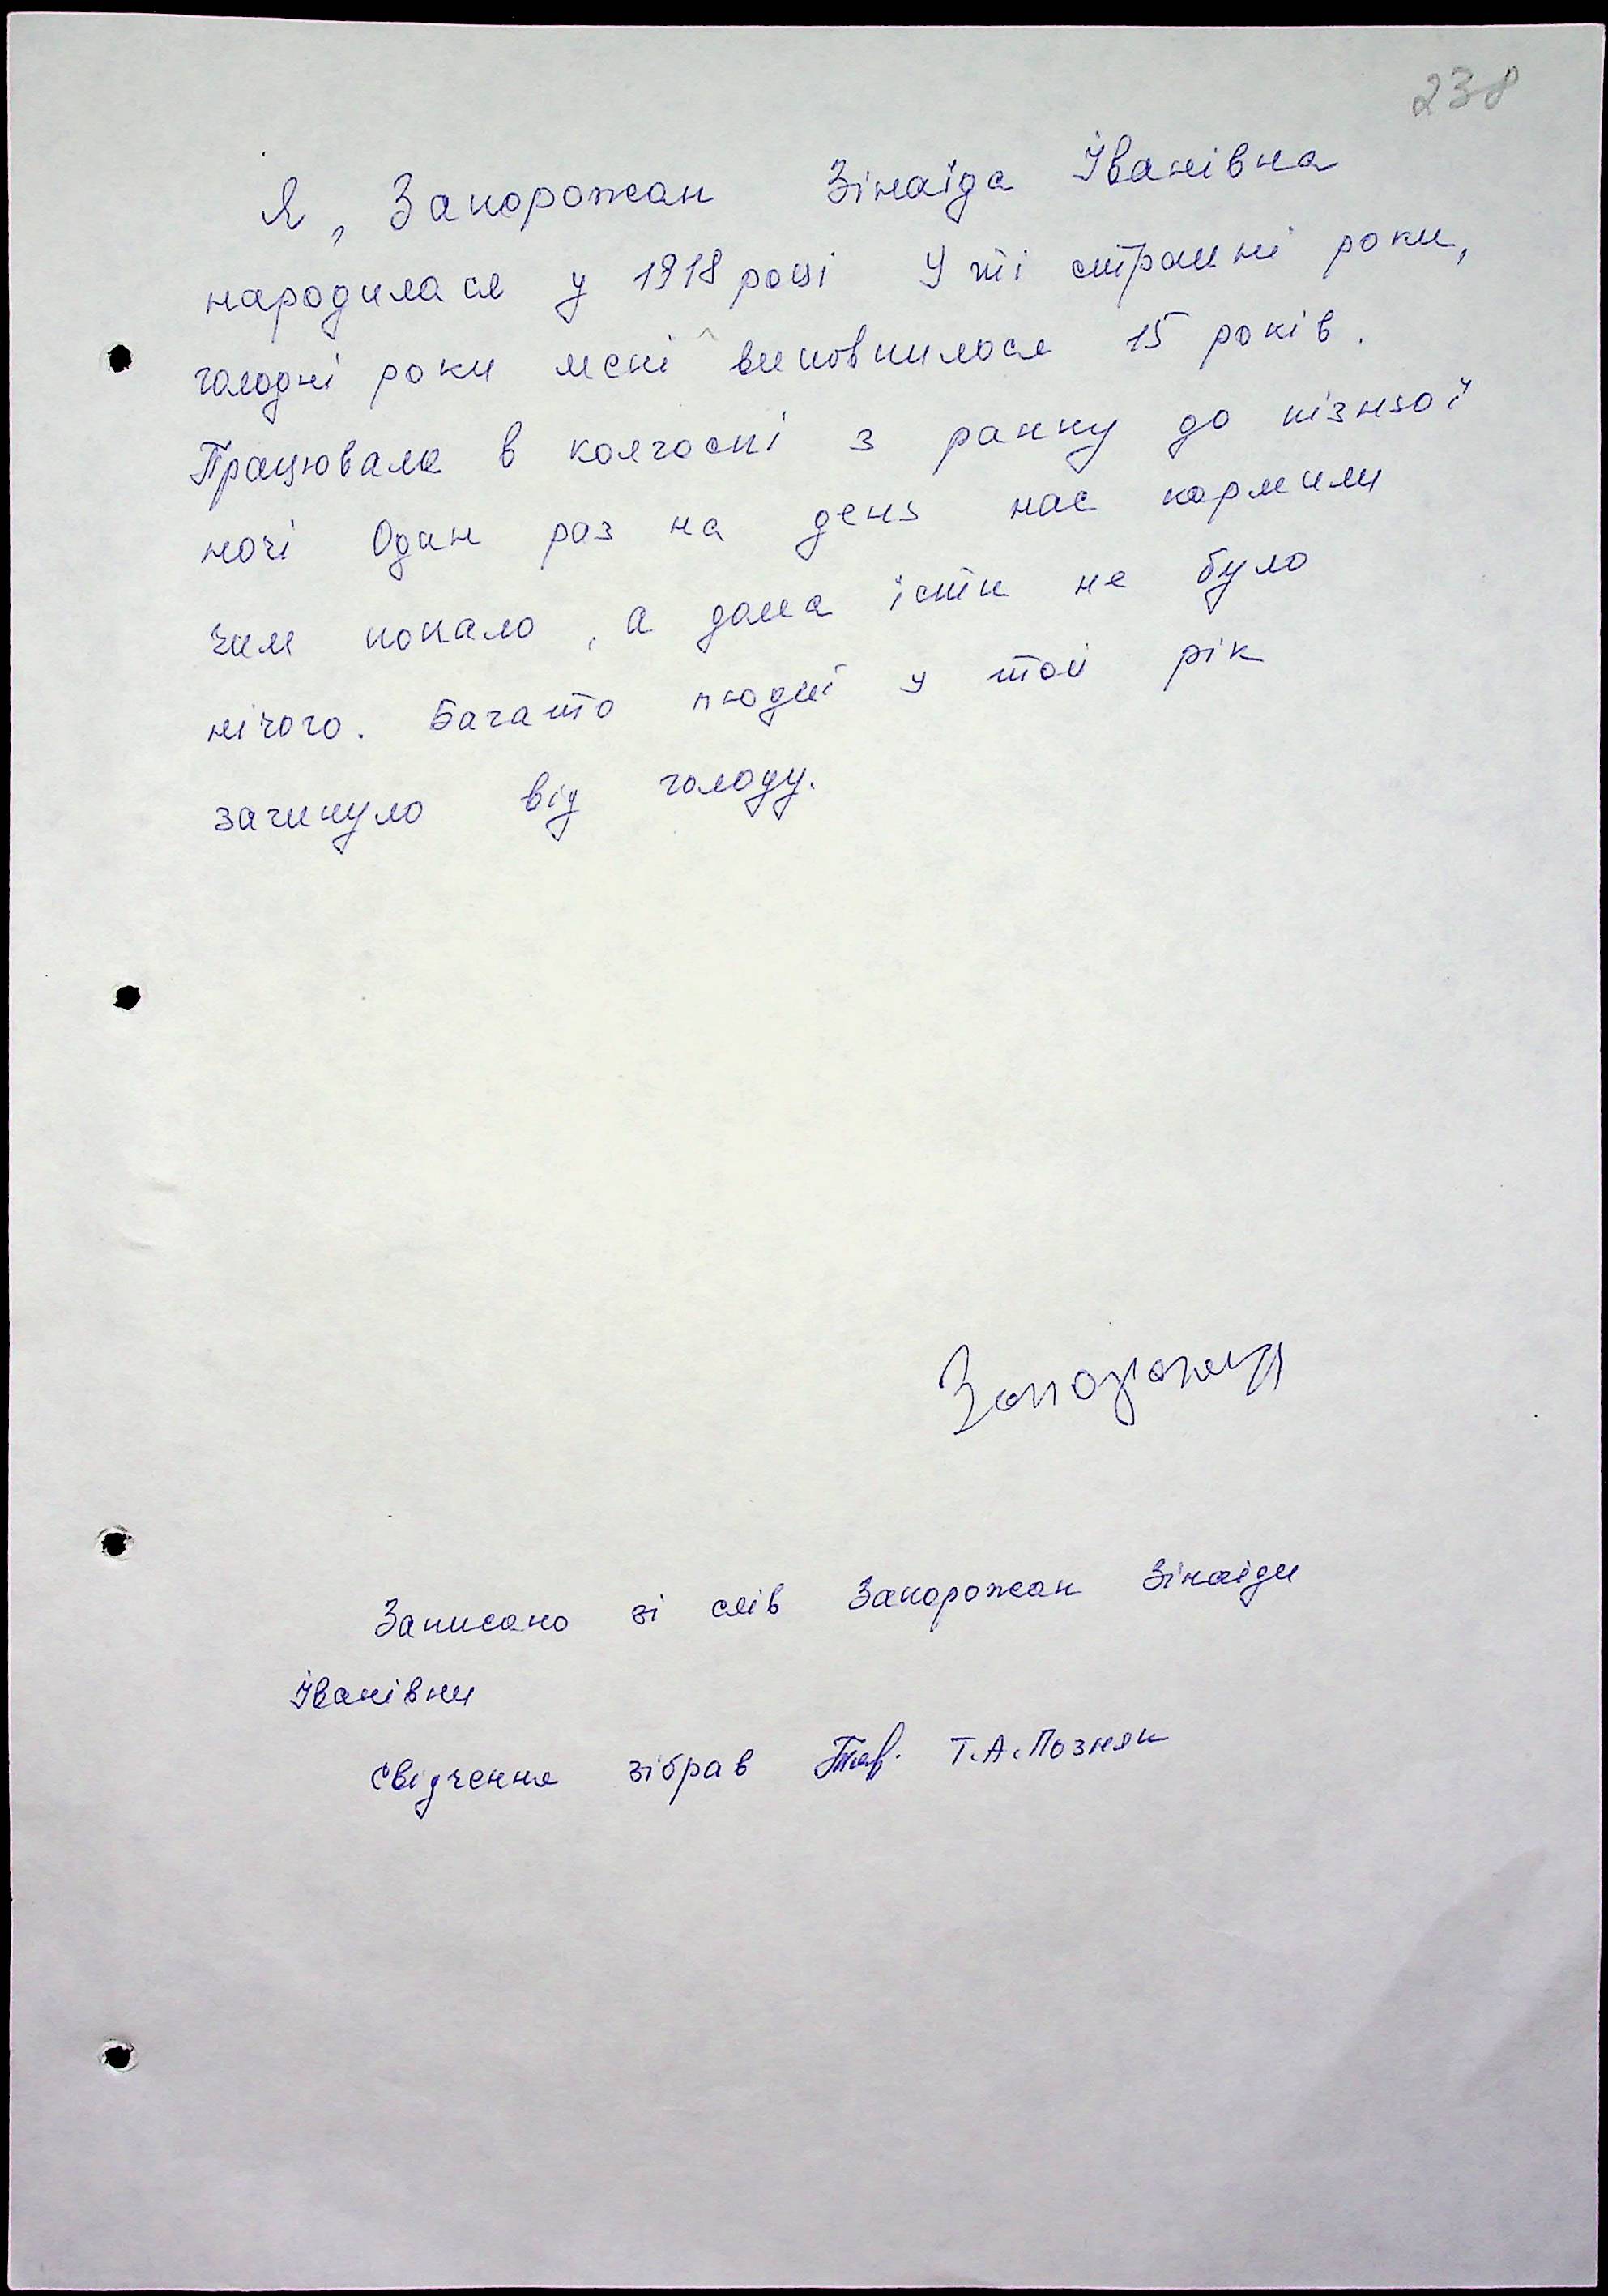 238
Я, Запорожан Зінаїда Іванівна
народилася у 1918 році У ті страшні роки,
голодні роки мені виповнилося 15 років.
Працювала в колгоспі з ранку до пізньої
ночі Один раз на день нас кормили
чим попало, а дома їсти не було
нічого. Багато людей у той рік
загинуло від голоду.
Записано зі слів Запорожан Зінаїди
Іванівни
Свідчення зібрав Т.А.Позняк